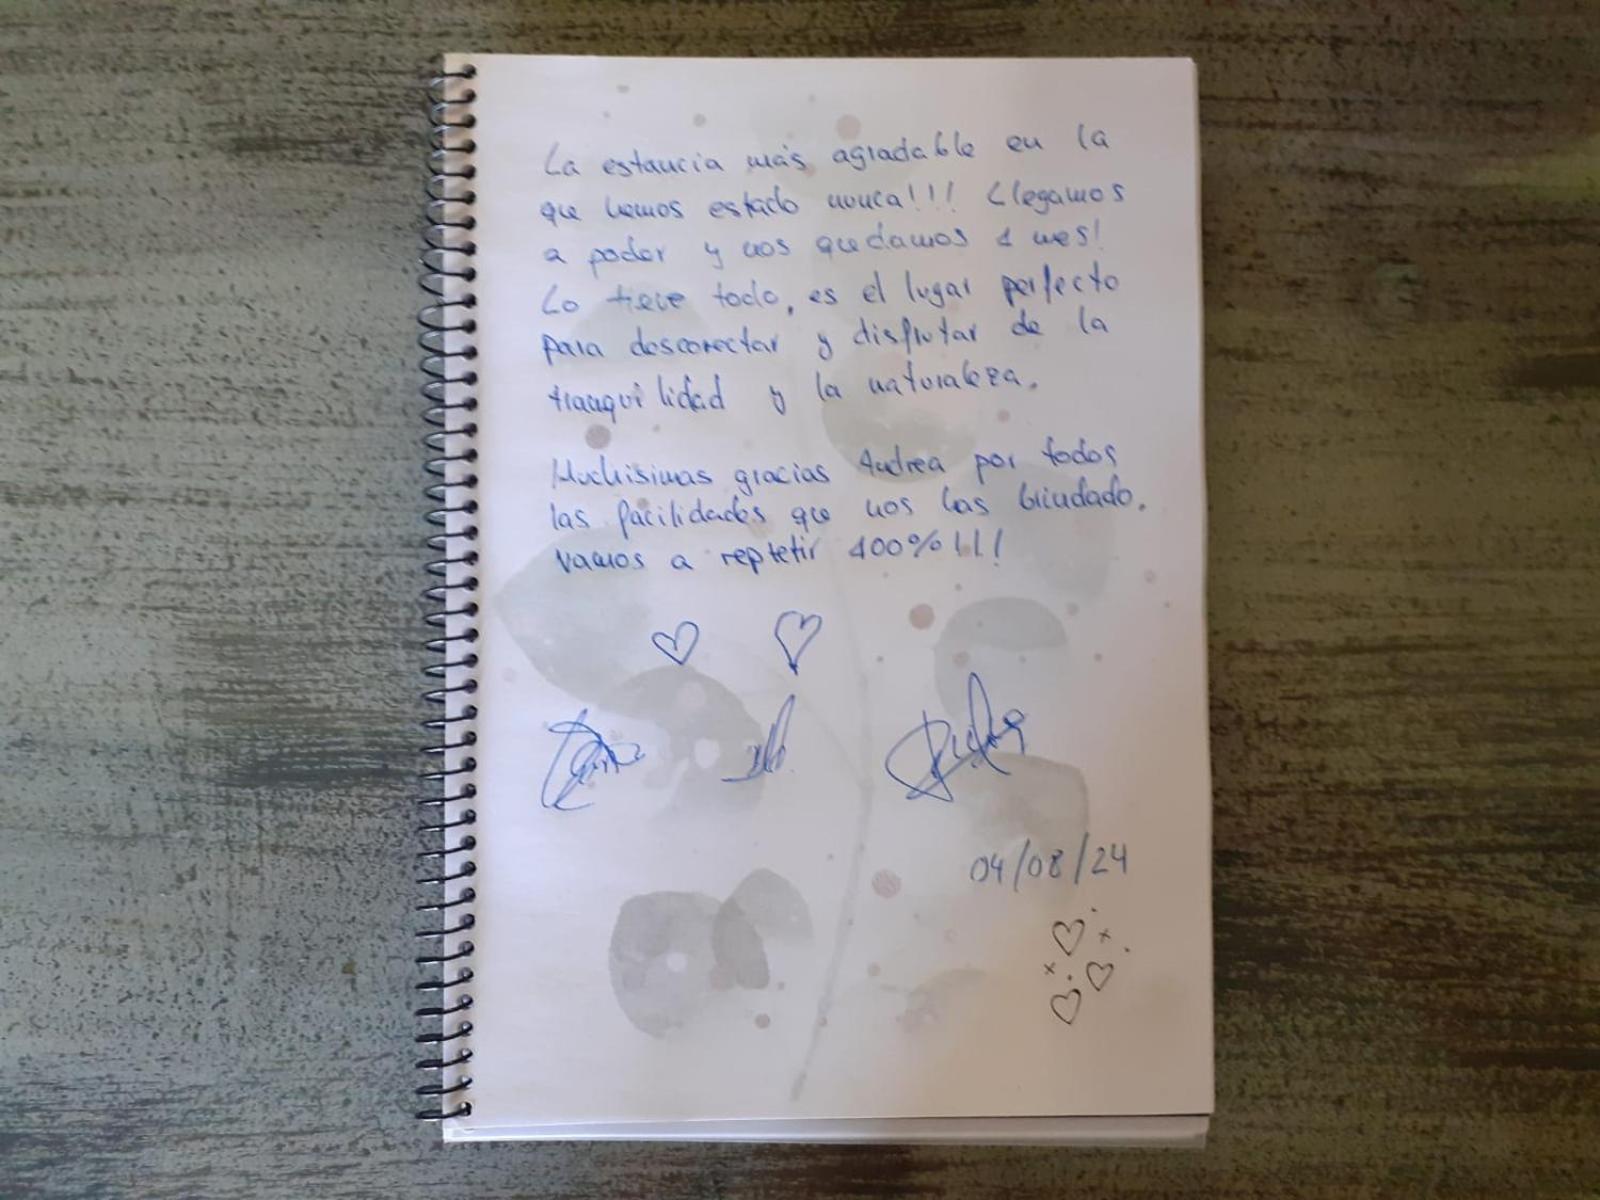 La estancia más agradable en la
que hemos estado nunca!!! Llegamos
a poder y nos quedamos 1 mes!
Lo tiene todo, es el lugar perfecto
para desconectar y disfrutar de la
tranquilidad y la naturaleza.
Muchisimas gracias Andrea por todos
las facilidades que nos has brindado.
Vamos a reptetir 100%!!!
04/08/24